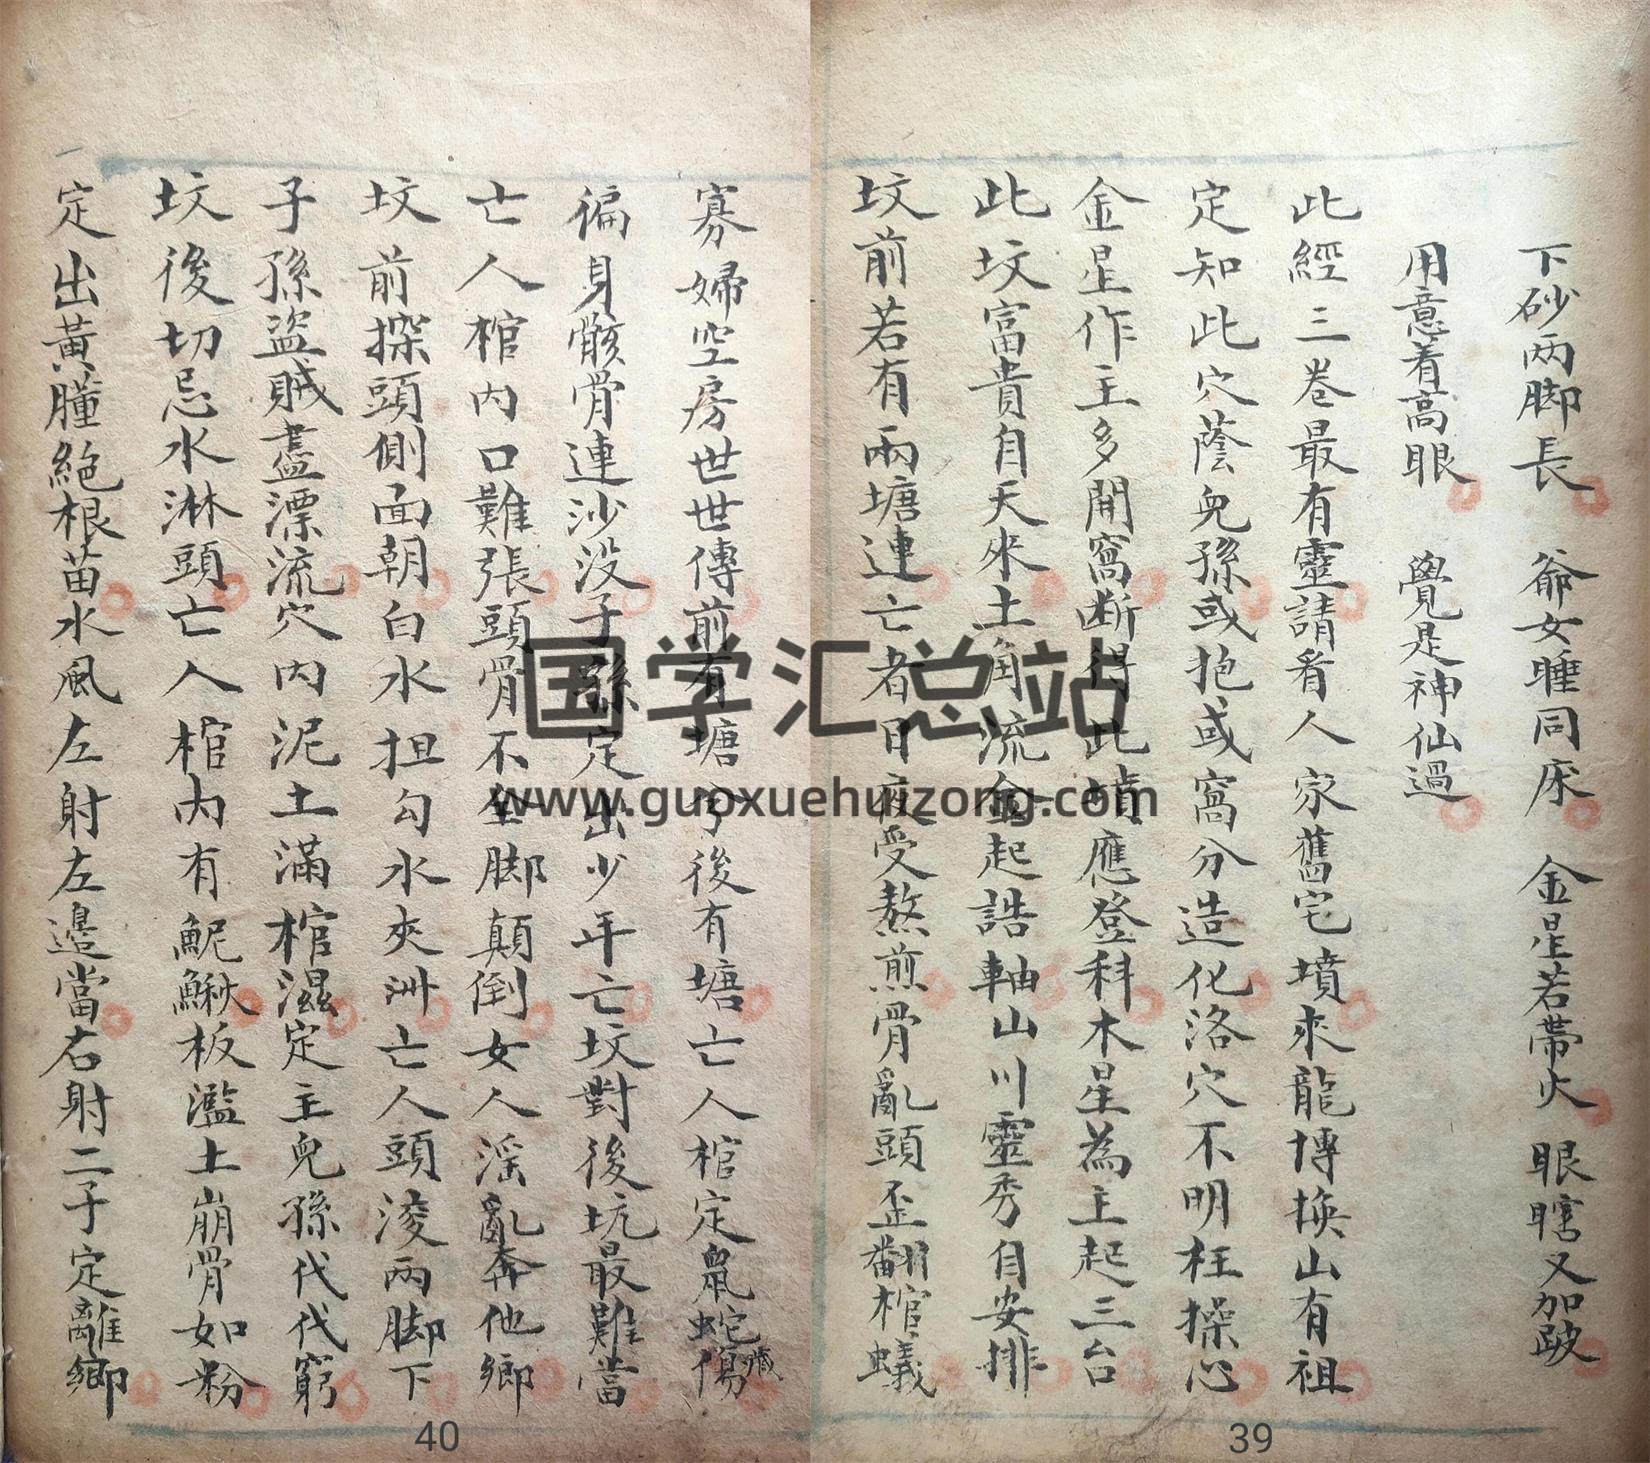 下砂两脚長　爺女睡同床　金星若帶火　眼瞎又加跛
用意着高眼　覺是神仙過
此經三卷最有靈請看人家舊宅墳來龍博換山有祖
定知此穴蔭兒孫或抱或窩分造化洛穴不明枉操心
金星作主多開窩断得此墳應登科木星為主起三台
此坟富貴自天來土角流金起誥軸山川靈秀自安排
坟前若有兩塘連亡者日夜受熬煎骨亂頭歪翻棺蟻
寡婦空房世世傳前有塘兮後有塘亡人棺定鼠蛇傷藏
徧身骸骨連沙没子孫定出少年亡坟對後坑最難當
亡人棺内口難張頭骨不全脚顛倒女人淫亂奔他鄉
坟前探頭側面朝白水担勾水夾洲亡人頭淩两脚下
子孫盜賊盡漂流穴内泥土滿棺濕定主兒孫代代窮
坟後切忌水淋頭亡人棺内有鯢鰍板濫土崩骨如粉
定出黃腫絶根苗水風左射左邊當右射二子定離鄉
国学汇总站
www.guoxuehuizong.com
40
39